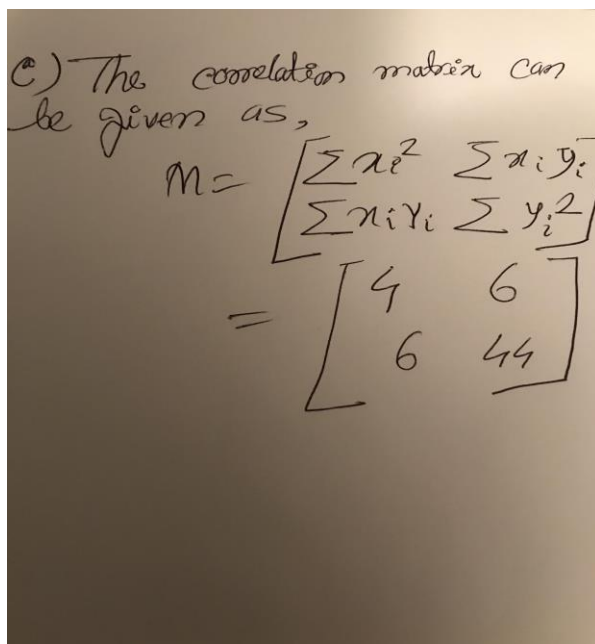 c) The correlation matrix can
be given as,
M = [ ∑xi² ∑xiyi
∑xiYi ∑yi² ]
= [ 4 6
6 44 ]